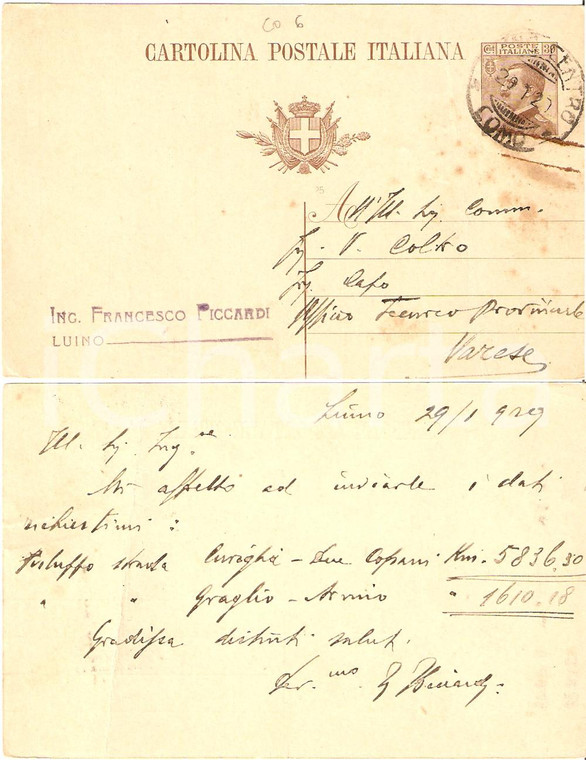 CO 6
CARTOLINA POSTALE ITALIANA
POSTE ITALIANE 30
CENTRO
COMO
All'Ill. Sig. Comm.
Ing. V.
Ing. Capo
Ufficio Tecnico Provinciale
Varese
ING. FRANCESCO PICCARDI
LUINO
Luino 29/1 929
Ill. Sig. Ing.re
Mi affretto ad inviarle i dati
richiestimi:
Sviluppo strada Curiglia - Due Cossani Km. 5836.30
" " Graglio - Armio " 1610.18
Gradisca distinti saluti.
Dev.mo